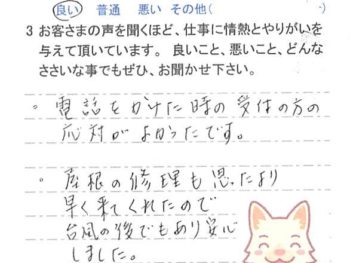 良い 普通 悪い その他( )
3 お客さまの声を聞くほど、仕事に情熱とやりがいを
与えて頂いています。 良いこと、悪いこと、どんな
ささいな事でもぜひ、お聞かせ下さい。
。電話をかけた時の受付の方の
応対がよかったです。
。屋根の修理も思ったより
早く来てくれたので
台風の後でもあり安心
しました。